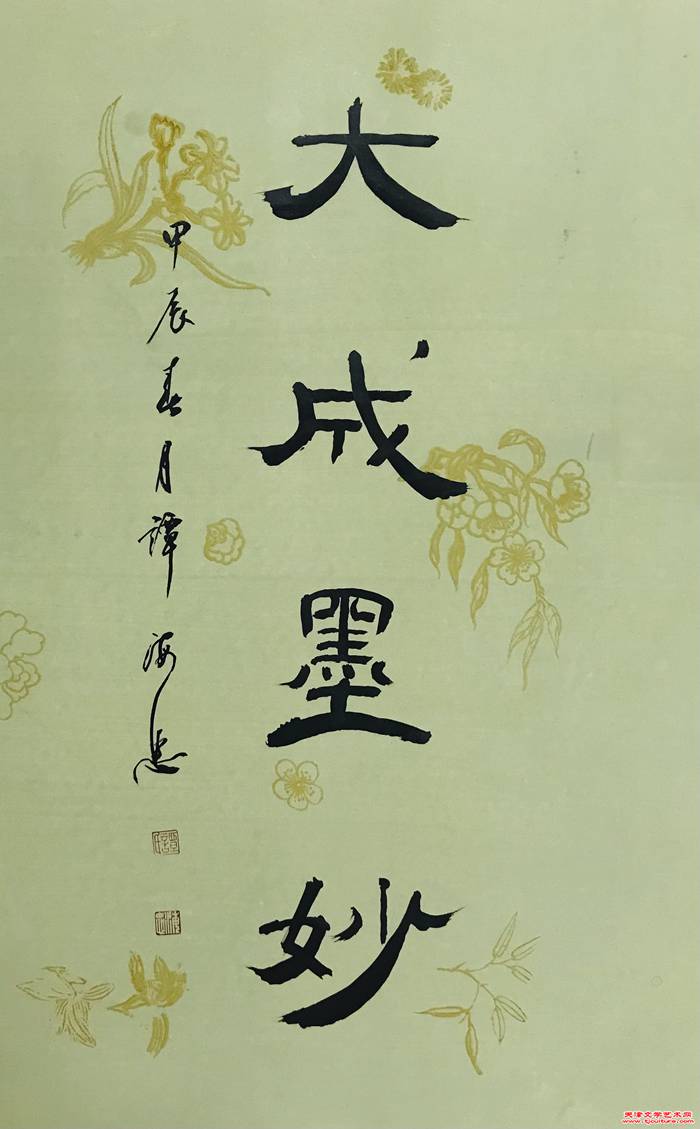 大成墨妙
甲辰春月谭海忠
天津文学艺术网
www.tjculture.com